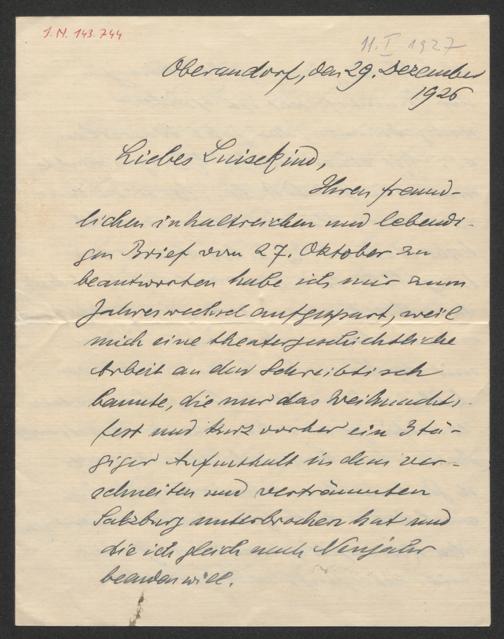 J.N. 143.744
11. I 1927
Oberandorf, den 29. Dezember
1926
Liebes Luisekind,
Ihren freund-
lichen inhaltreichen und lebendi-
gen Brief vom 27. Oktober zu
beantworten habe ich mir zum
Jahreswechsel aufgespart, weil
mich eine theatergeschichtliche
Arbeit an den Schreibtisch
bannte, die nur das Weihnachts-
fest und kurz vorher ein 3tä-
giger Aufenthalt in dem ver-
schneiten und verträumten
Salzburg unterbrochen hat und
die ich gleich nach Neujahr
beenden will.